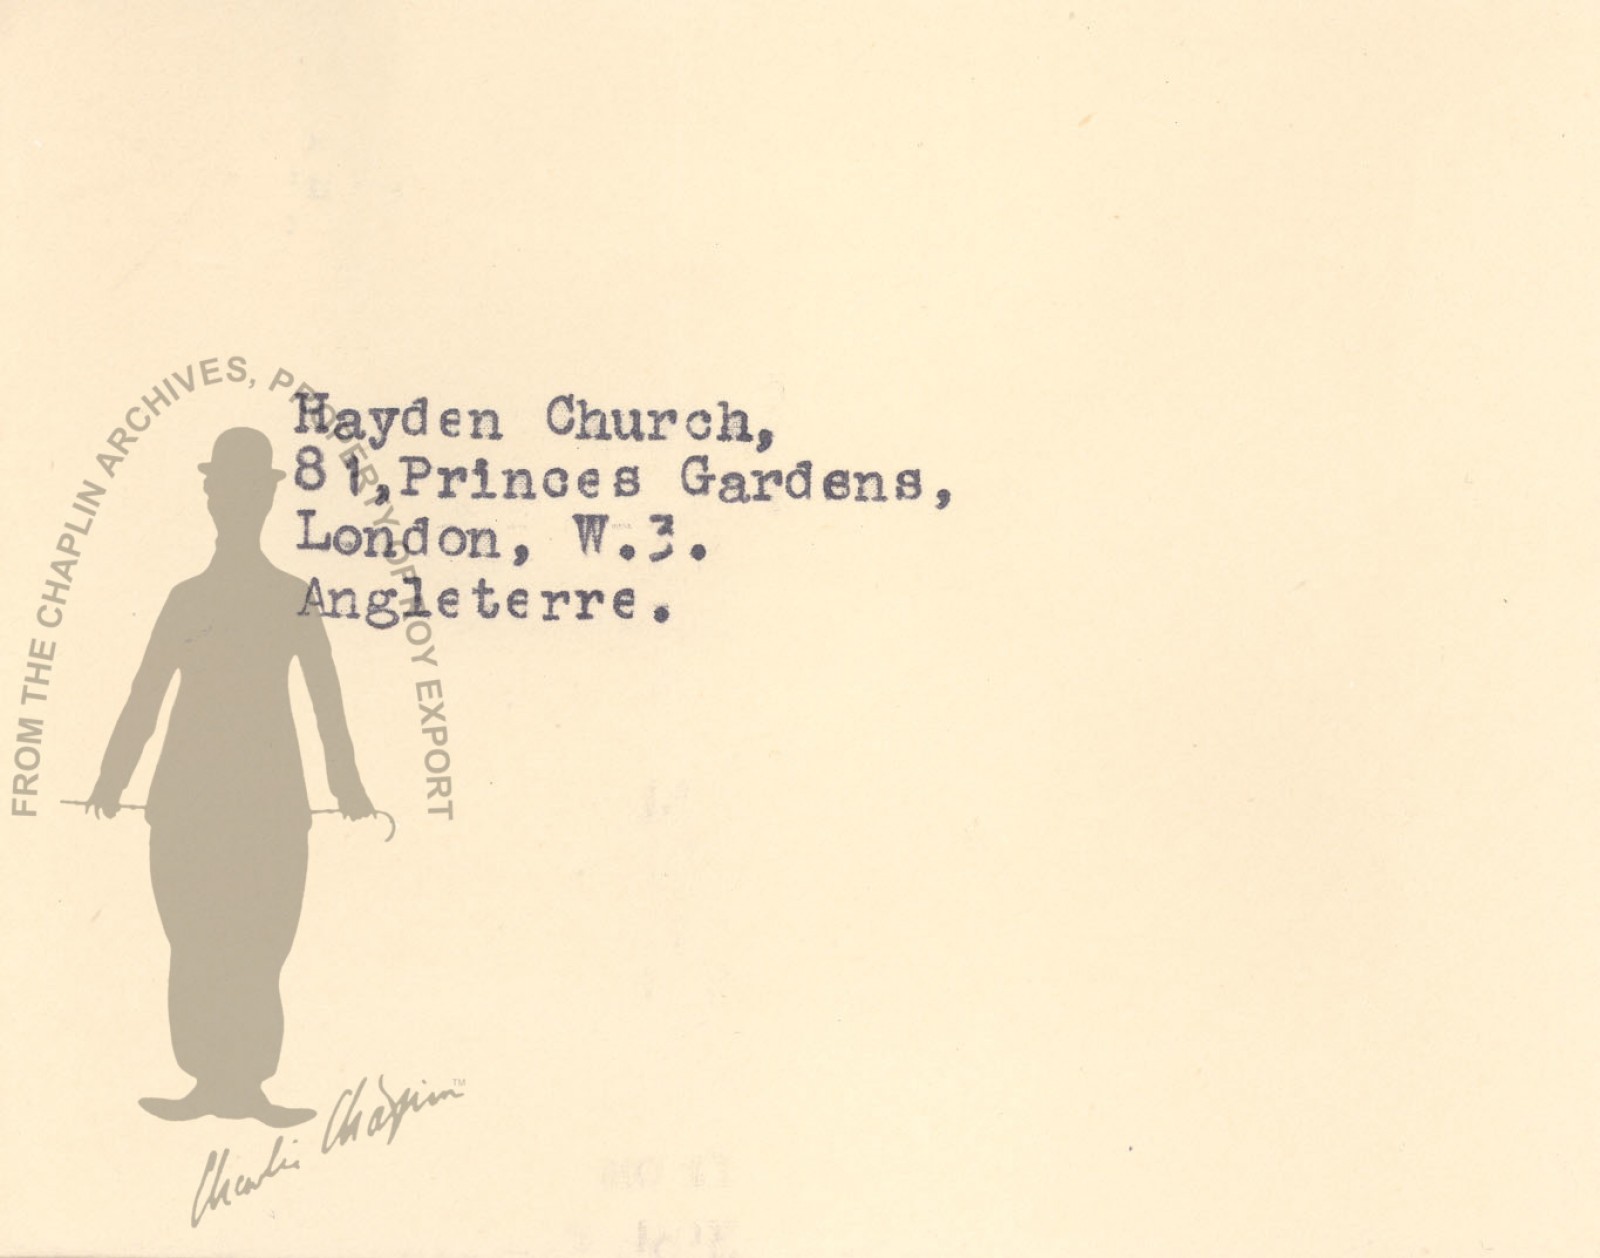 Hayden Church,
81,Princes Gardens,
London, W.3.
Angleterre.
FROM THE CHAPLIN ARCHIVES, PROPERTY OF ROY EXPORT
Charlie Chaplin™